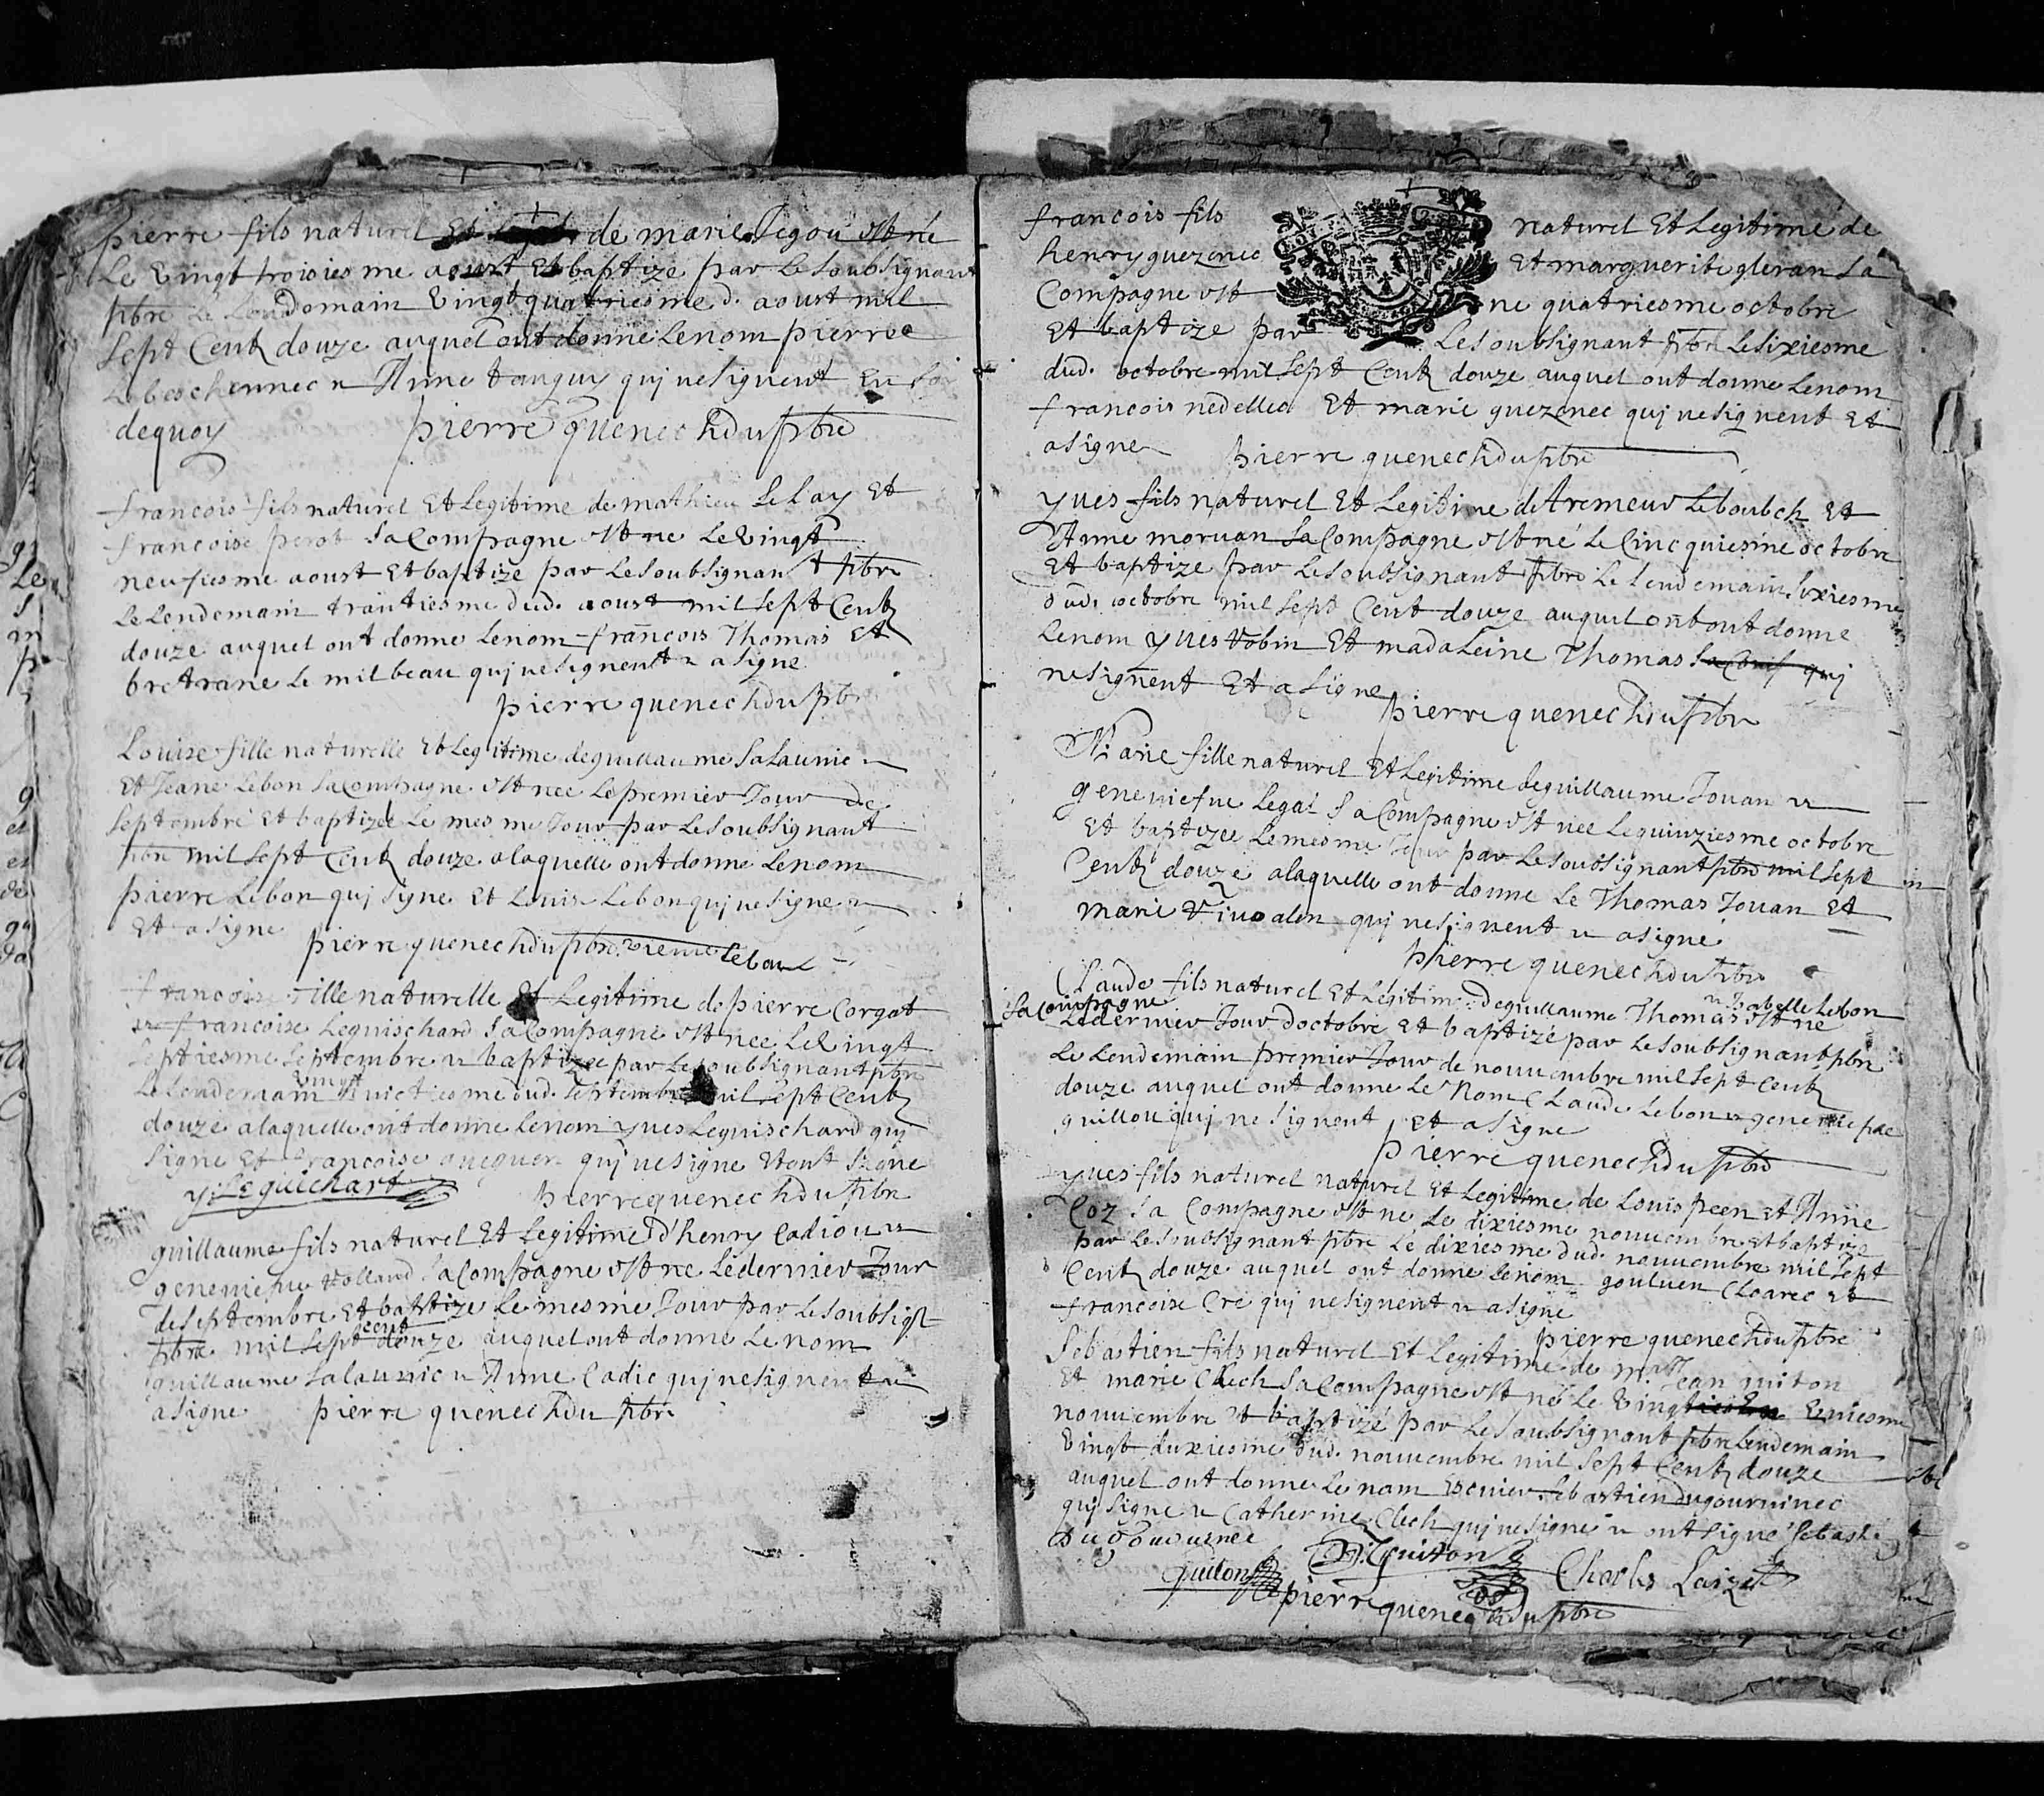 pierre fils naturel de marie Jegou est né
Le vingt troisiesme aoust et baptize par Le soubsignant
pbre Le lendemain vingt quatriesme d. aoust mil
sept Centz douze auquel ont donne Le nom pierre
Anne tanguy quj ne signent En foy
dequoy pierre quenechdu pbre
francois fils naturel Et Legitime de mathieu Le Lay Et
francoise perot sa Compagne est ne Le vingt
neufiesme aoust Et baptize par Le soubsignant pbre
Le Lendemain trantiesme dud. aoust mil sept Centz
douze auquel ont donne Le nom francois Thomas Et
Le milbeau quj ne signent & a signe
pierre quenechdu pbre
Louise fille naturelle Et Legitime de guillaume Salaunic
Et Jeane Lebon sa Compagne est nee Le premier Jour de
septembre Et baptizee Le mesme Jour par Le soubsignant
pbre mil sept Centz douze a laquelle ont donne Le nom
pierre Lebon quj signe Et Louise Lebon quj ne signe &
Et a signe pierre quenechdu pbre pierre Lebon
francoise fille naturelle Et Legitime de pierre Corgat
& francoise Leguischard sa Compagne est nee Le vingt
septiesme septembre & baptizee par Le soubsignant pbre
Le Lendemain vingt huictiesme dud. septembre mil sept Centz
douze a laquelle ont donne Le nom yves Leguischard quj
signe Et francoise quj ne signe Et ont signe
y: Le guichart pierre quenechdu pbre
guillaume fils naturel Et Legitime d'henry Cadiou &
geneviefue Rolland sa Compagne est ne Le dernier Jour
de septembre Et baptize Le mesme Jour par Le soubsigt
pbre mil sept cent douze auquel ont donne Le nom
guillaume salaunic & Anne Cadic quj ne signent &
a signe pierre quenechdu pbre
francois fils naturel Et Legitime de
henry guezenec Et marguerite gleran sa
Compagne est ne quatriesme octobre
Et baptize par Le soubsignant pbre Le sixiesme
dud. octobre mil sept Centz douze auquel ont donne Le nom
francois nedellec Et marie guezenec quj ne signent Et
a signe pierre quenechdu pbre
yves fils naturel Et Legitime de tremeur Leboubch Et
Anne moruan sa Compagne est né Le Cincquiesme octobre
Et baptize par Le soubsignant pbre Le Lendemain sixiesme
dud. octobre mil sept Cent douze auquel ont ont donne
Le nom yves tobin Et madaleine Thomas quj
ne signent Et a signe
pierre quenechdu pbre
Marie fille naturel Et Legitime de guillaume Jouan &
geneviefue Legal sa Compagne est nee Le quinziesme octobre
Et baptizee Le mesme Jour par Le soubsignant pbre mil sept
Centz douze a laquelle ont donne Le Thomas Jouan Et
marie quj ne signent & a signe
pierre quenechdu pbre
Claude fils naturel Et Legitime de guillaume Thomas & Isabelle Lebon
sa Compagne est ne
Le dernier Jour d'octobre Et baptizé par Le soubsignant pbre
Le Lendemain premier Jour de nouuembre mil sept Centz
douze auquel ont donne Le Nom Claude Lebon & geneviefue
guillou quj ne signent Et a signe
pierre quenechdu pbre
yves fils naturel naturel Et Legitime de Louis peen Et Anne
Coz sa Compagne est ne Le dixiesme nouuembre et baptize
par Le soubsignant pbre Le dixiesme dud. nouuembre mil sept
Centz douze auquel ont donne Le nom gouluen Cloarec Et
francoise Cre quj ne signent & a signe
pierre quenechdu pbre
Sebastien fils naturel Et Legitime de mr Jean
Et marie Clech sa Compagne est né Le vingt vniesme
nouuembre Et baptizé par Le soubsignant pbre Lendemain
vingt duxiesme dud. nouuembre mil sept Centz douze
auquel ont donne Le nom Sebastien
quj signe & Catherine Clech quj ne signe & ont signe Sebast.
Quiton Guiton Charles Laizet
pierre quenechdu pbre